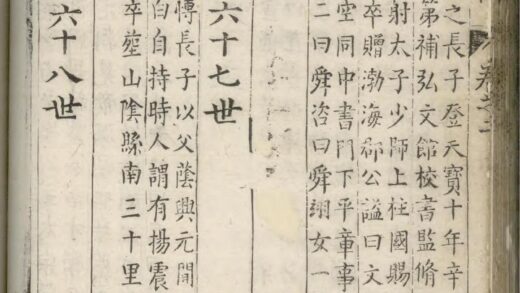 之長子登天寶十年辛
第補弘文館校書監脩
射太子少師上柱國賜
卒贈渤海郡公謚曰文
空同中書門下平章事
二曰舜咨曰舜詡女一
六十七世
慱長子以父蔭興元開
白自持時人謂有揚震
卒塟山陰縣南三十里
六十八世